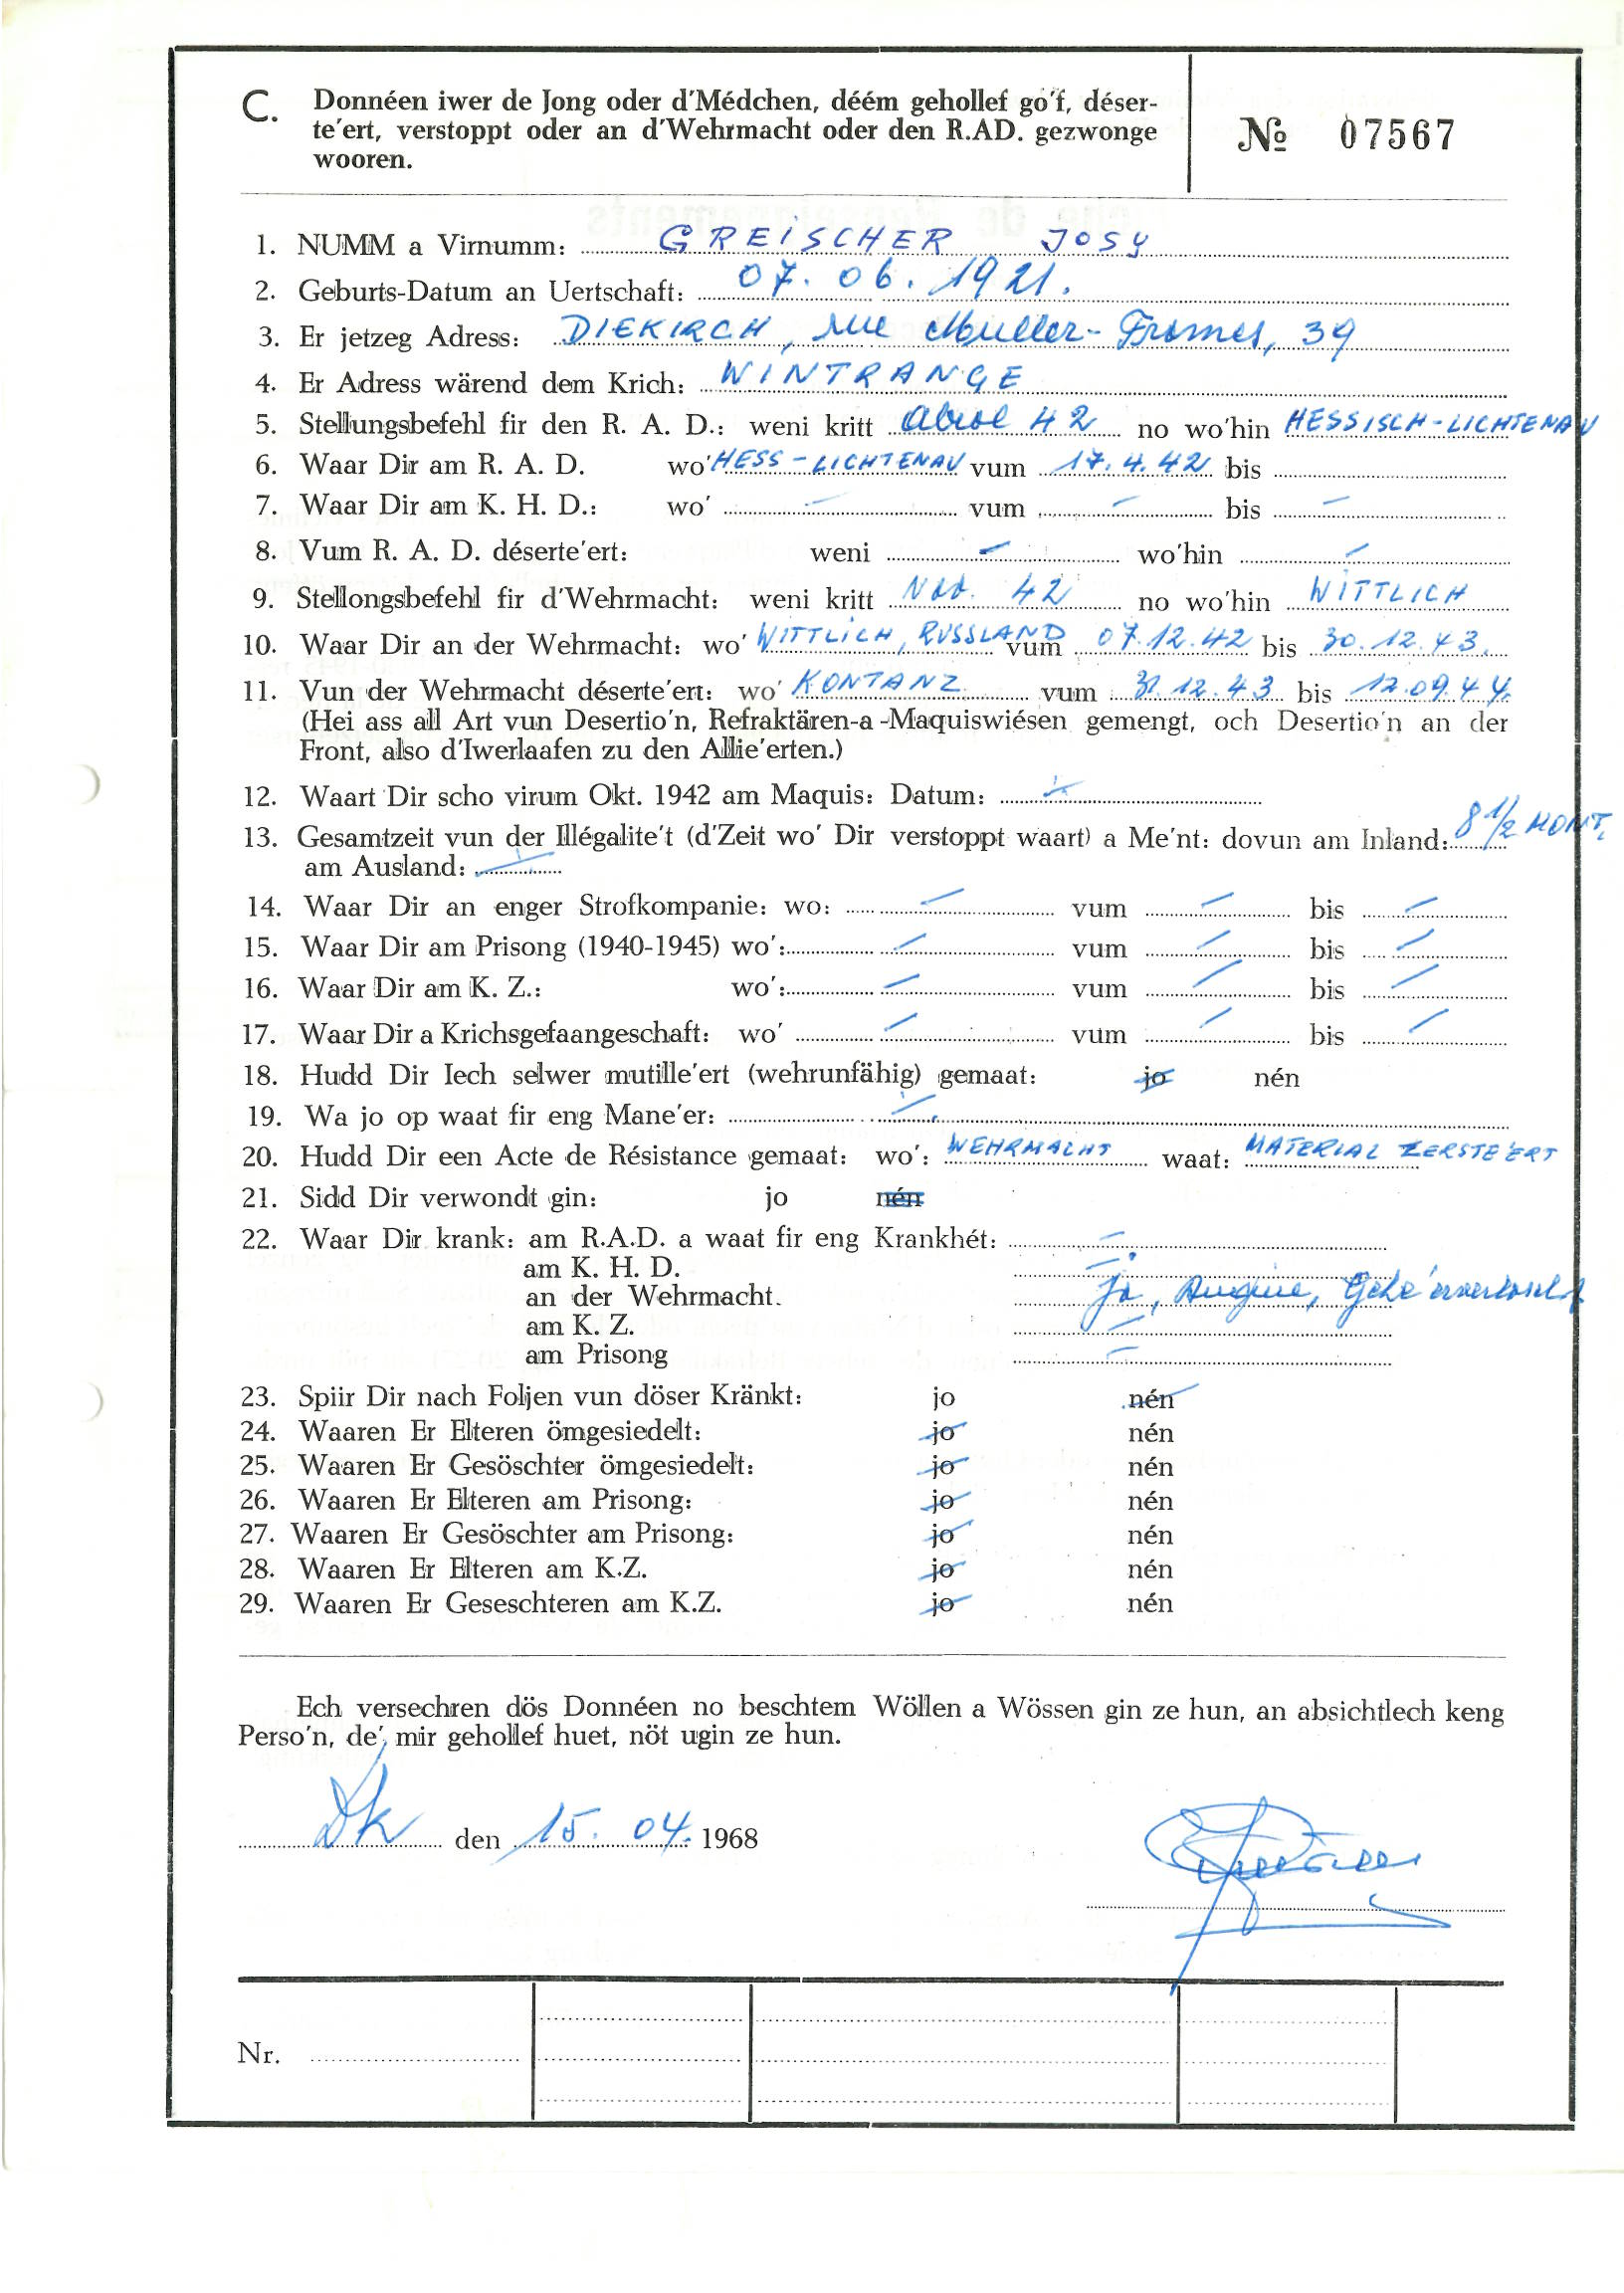 C. Donnéen iwer de Jong oder d'Médchen, déém gehollef go'f, déser-
te'ert, verstoppt oder an d'Wehrmacht oder den R.AD. gezwonge
wooren.
№ 07567
1. NUMM a Virnumm: GREISCHER JOSY
2. Geburts-Datum an Uertschaft: 07.06.1921.
3. Er jetzeg Adress: DIEKIRCH, rue Muller-Fromes, 39
4. Er Adress wärend dem Krich: WINTRANGE
5. Stellungsbefehl fir den R. A. D.: weni kritt 42 no wo'hin HESSISCH-LICHTENAU
6. Waar Dir am R. A. D. wo' HESS-LICHTENAU vum 17.4.42 bis
7. Waar Dir am K. H. D.: wo' – vum – bis –
8. Vum R. A. D. déserte'ert: weni – wo'hin –
9. Stellongsbefehl fir d'Wehrmacht: weni kritt Nov. 42 no wo'hin WITTLICH
10. Waar Dir an der Wehrmacht: wo' WITTLICH, RUSSLAND vum 07.12.42 bis 30.12.43.
11. Vun der Wehrmacht déserte'ert: wo' KONTANZ vum 31.12.43 bis 12.09.44.
(Hei ass all Art vun Desertio'n, Refraktären-a-Maquiswiésen gemengt, och Desertio'n an der
Front, also d'Iwerlaafen zu den Allie'erten.)
12. Waart Dir scho virum Okt. 1942 am Maquis: Datum: –
13. Gesamtzeit vun der Illégalite't (d'Zeit wo' Dir verstoppt waart) a Me'nt: dovun am Inland: 8 1/2 MONT.
am Ausland: –
14. Waar Dir an enger Strofkompanie: wo: – vum – bis –
15. Waar Dir am Prisong (1940-1945) wo': – vum – bis –
16. Waar Dir am K. Z.: wo': – vum – bis –
17. Waar Dir a Krichsgefaangeschaft: wo' – vum – bis –
18. Hudd Dir Iech selwer mutille'ert (wehrunfähig) gemaat: jo nén
19. Wa jo op waat fir eng Mane'er: –
20. Hudd Dir een Acte de Résistance gemaat: wo': WEHRMACHT waat: MATERIAL ZERSTE'ERT
21. Sidd Dir verwondt gin: jo nén
22. Waar Dir krank: am R.A.D. a waat fir eng Krankhét: –
am K. H. D. –
an der Wehrmacht. Jo, Angine,
am K. Z. –
am Prisong –
23. Spiir Dir nach Foljen vun döser Kränkt: jo nén
24. Waaren Er Elteren ömgesiedelt: jo nén
25. Waaren Er Gesöschter ömgesiedelt: jo nén
26. Waaren Er Elteren am Prisong: jo nén
27. Waaren Er Gesöschter am Prisong: jo nén
28. Waaren Er Elteren am K.Z. jo nén
29. Waaren Er Geseschteren am K.Z. jo nén
Ech versechren dös Donnéen no beschtem Wöllen a Wössen gin ze hun, an absichtlech keng
Perso'n, de', mir gehollef huet, nöt ugin ze hun.
Dk den 15.04. 1968
Nr.